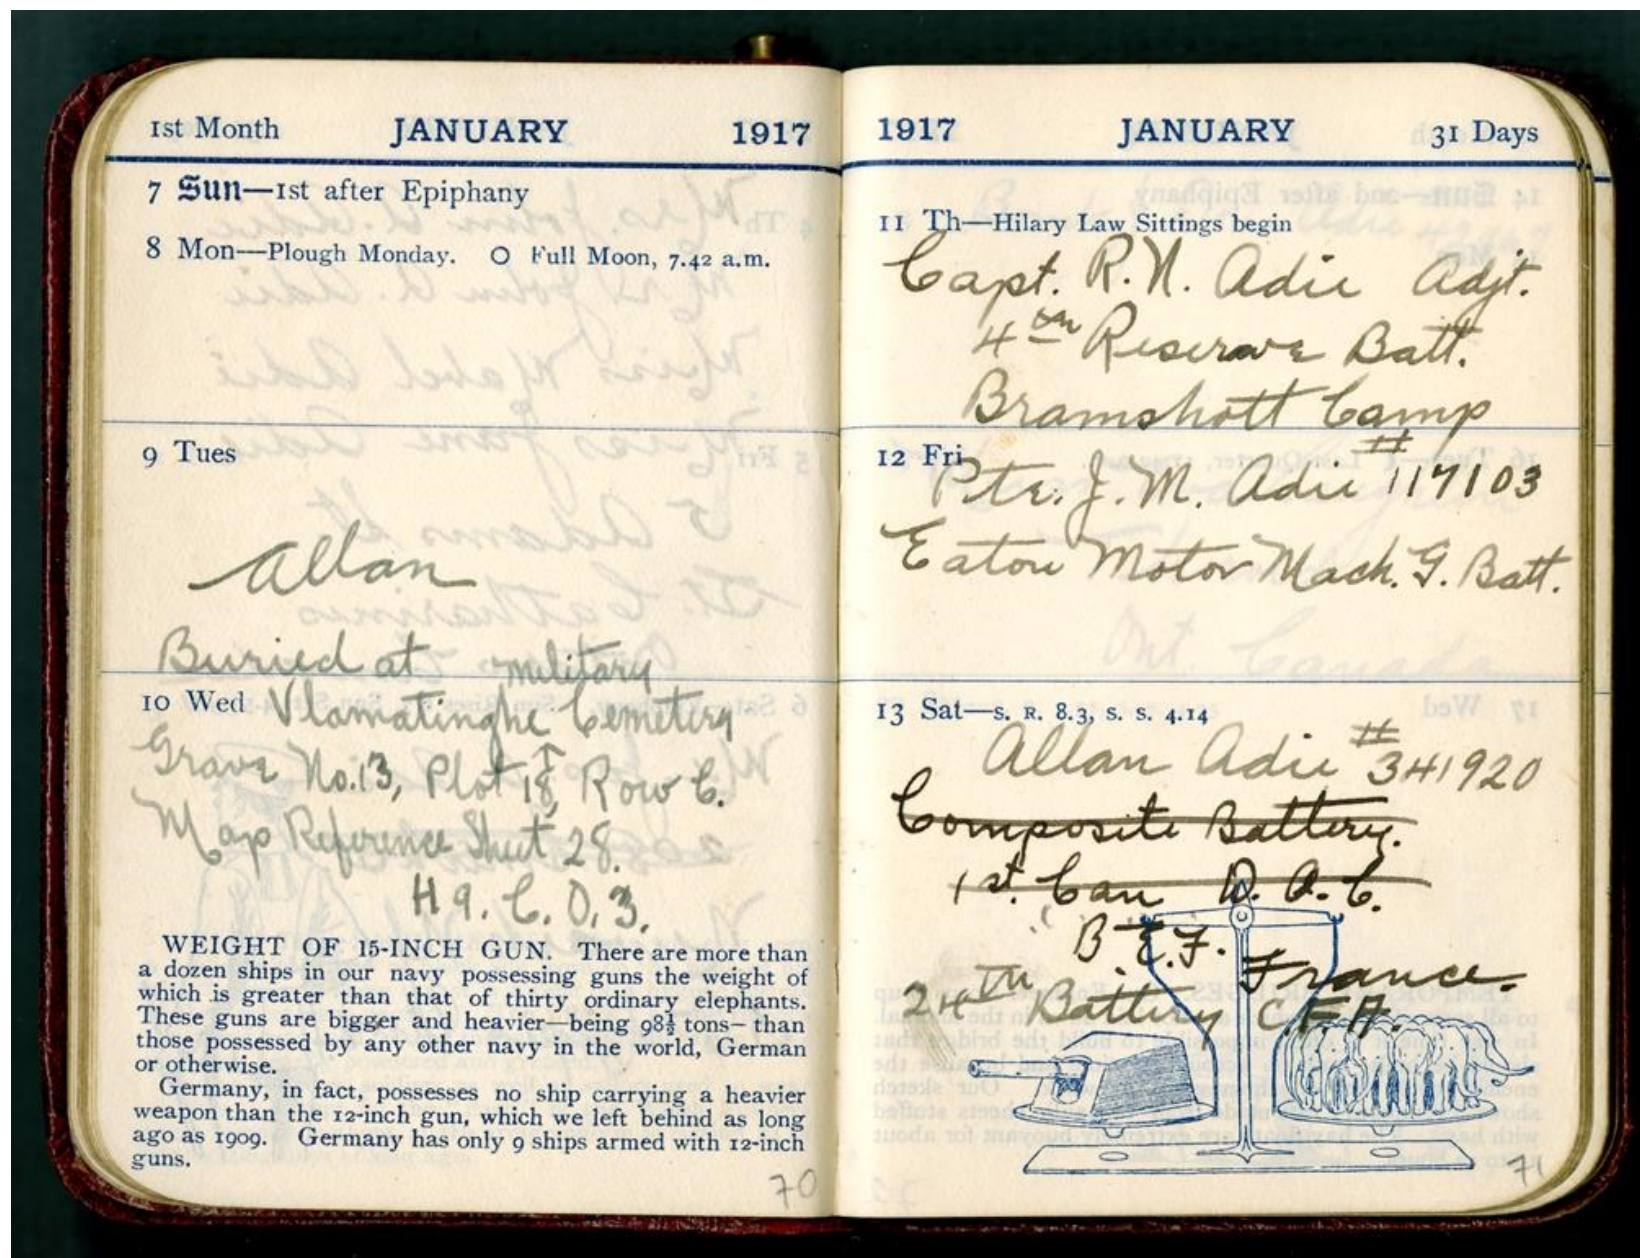 1st Month JANUARY 1917
7 Sun—1st after Epiphany
8 Mon—Plough Monday. O Full Moon, 7.42 a.m.
9 Tues
Allan
Buried at military
10 Wed Vlamatinghe Cemetery
Grave No.13, Plot 18, Row C.
Map Reference Sheet 28.
H 9. C. 0. 3.
WEIGHT OF 15-INCH GUN. There are more than
a dozen ships in our navy possessing guns the weight of
which is greater than that of thirty ordinary elephants.
These guns are bigger and heavier—being 98½ tons—than
those possessed by any other navy in the world, German
or otherwise.
Germany, in fact, possesses no ship carrying a heavier
weapon than the 12-inch gun, which we left behind as long
ago as 1909. Germany has only 9 ships armed with 12-inch
guns.
70
1917 JANUARY 31 Days
11 Th—Hilary Law Sittings begin
Capt. R. N. Adie Adjt.
4th Reserve Batt.
Bramshott Camp
12 Fri
Pte. J. M. Adie #117103
Eaton Motor Mach. G. Batt.
13 Sat—S. R. 8.3, S. S. 4.14
Allan Adie #341920
Composite Battery.
1st. Can D. A. C.
B E. F. France.
24TH Battery C F A.
71